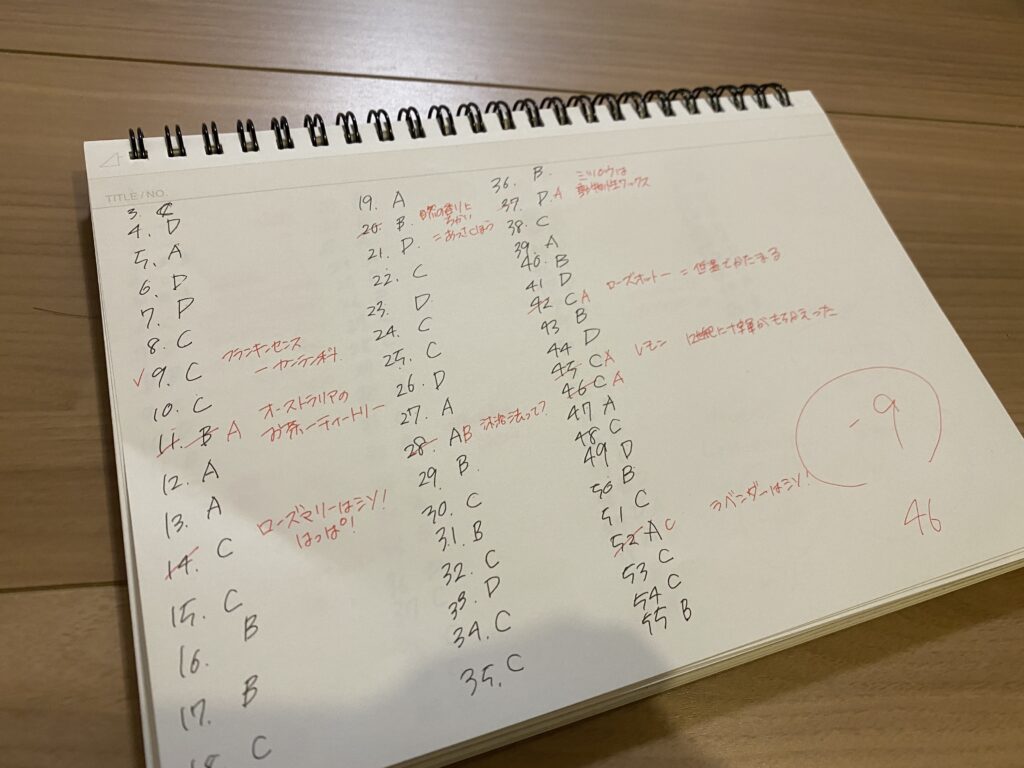 TITLE/NO.
3. C
4. D
5. A
6. D
7. D
8. C
✓ 9. C フランキンセンス
ーカンラン科
10. C
11. B A オーストラリアの
お茶ーティートリー
12. A
13. A
14. C ローズマリーはシソ!
はっぱ!
15. C
16. B
17. B
18. C
19. A
20. B 自然の香りと
ちがい
21. D. =あっさくほう
22. C
23. D
24. C
25. C
26. D
27. A
28. A B 法って?
29. B.
30. C
31. B
32. C
33. D
34. C
35. C
36. B. ミツロウは
37. D A 動物性ワックス
38. C
39. A
40. B
41 D
42 C A ローズオットー=低温でかたまる
43 B
44 D
45 C A レモン
46 C A
47 A
48 C
49 D
50 B
51 C
52 A C ラベンダーはシソ!
53 C
54 C
55 B
-9
46